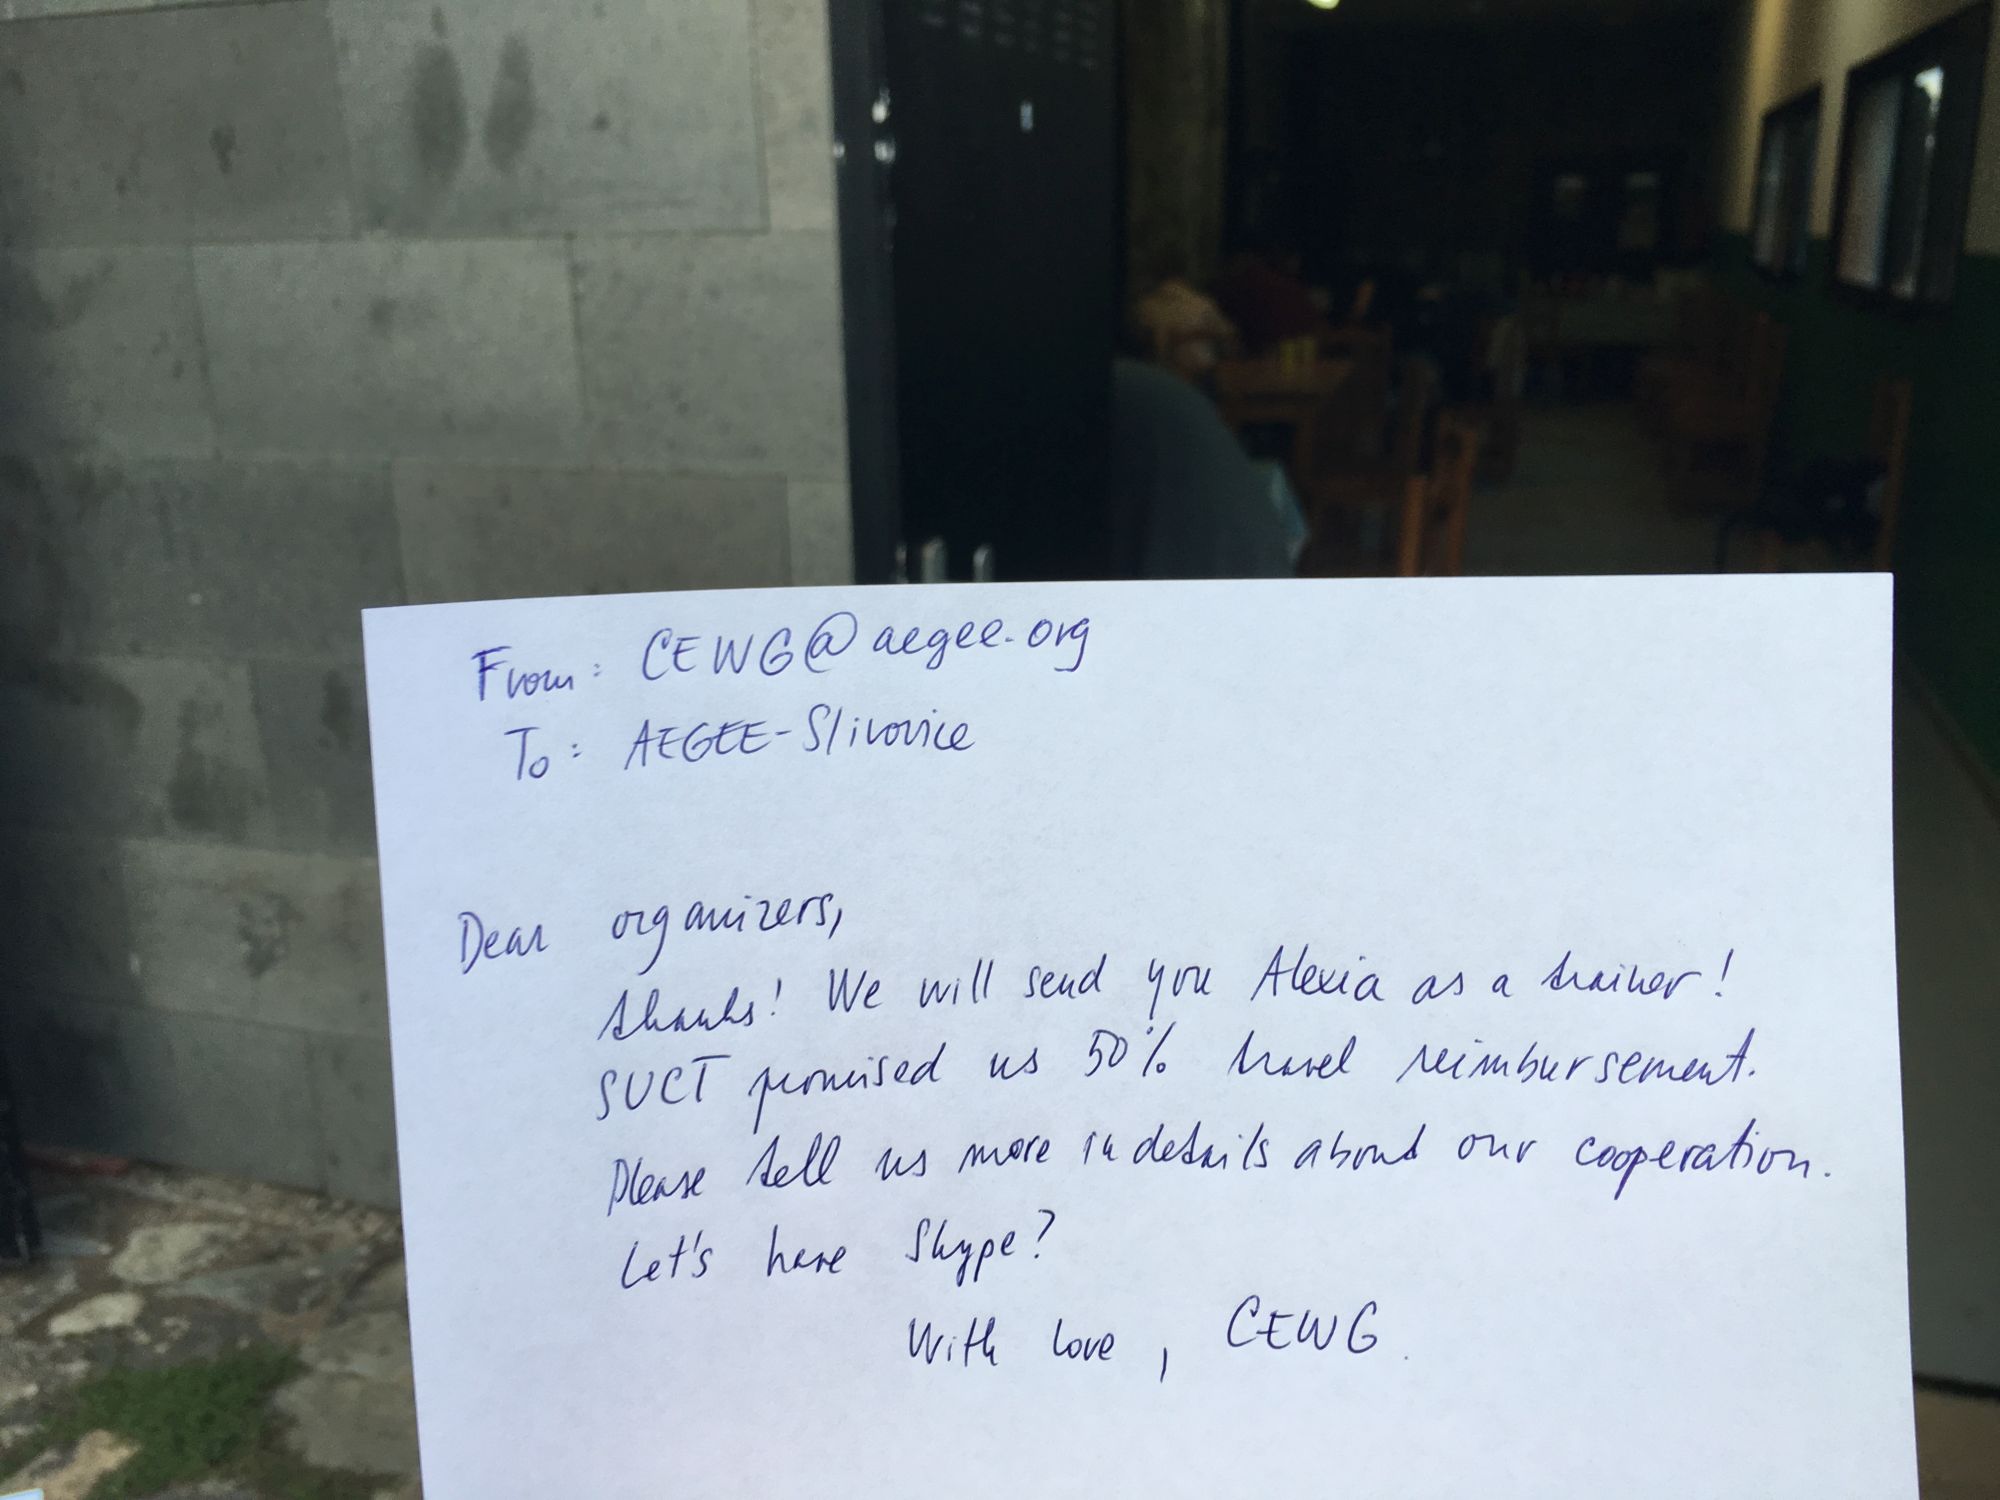 From: CEWG@aegee.org
To: AEGEE-Slivovice
Dear organizers,
thanks! We will send you Alexia as a trainer!
SUCT promised us 50% travel reimbursement.
Please tell us more in details about our cooperation.
Let's have Skype?
With love, CEWG.